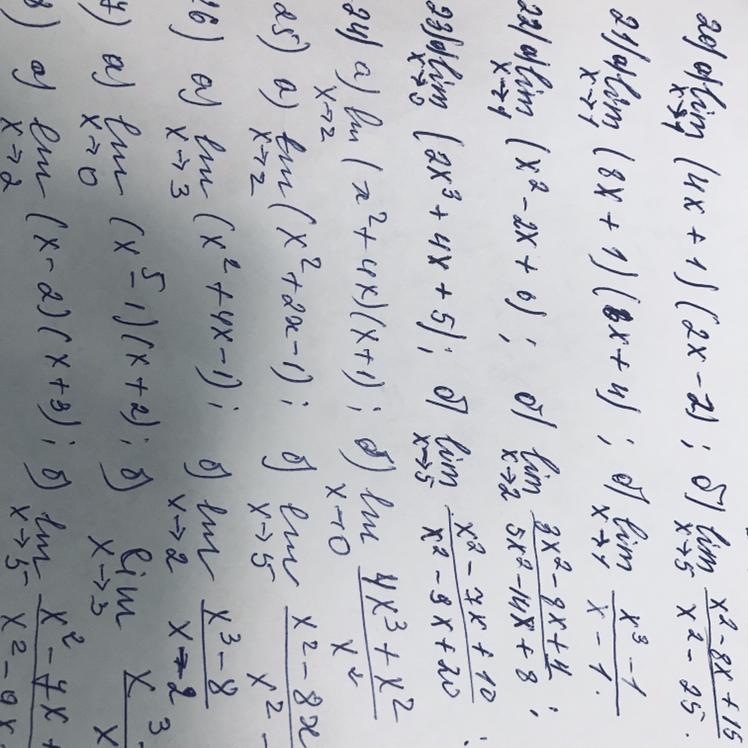 20) а) lim x→4 (4x + 1)(2x - 2); б) lim x→5 (x² - 8x + 15)/(x² - 25).
21) а) lim x→1 (8x + 1)(8x + 4); б) lim x→1 (x³ - 1)/(x - 1).
22) а) lim x→4 (x² - 2x + 6); б) lim x→2 (3x² - 8x + 4)/(5x² - 14x + 8);
23) а) lim x→0 (2x³ + 4x + 5); б) lim x→5 (x² - 7x + 10)/(x² - 9x + 20);
24) а) lim x→2 (x² + 4x)(x+1); б) lim x→0 (4x³ + x²)/x²
25) а) lim x→2 (x² + 2x - 1); б) lim x→5 (x² - 8x)/(x² -
26) а) lim x→3 (x² + 4x - 1); б) lim x→2 (x³ - 8)/(x - 2)
7) а) lim x→0 (x⁵ - 1)(x + 2); б) lim x→3 x³/x
8) а) lim x→2 (x - 2)(x + 3); б) lim x→5 (x² - 7x +)/(x² - 9x